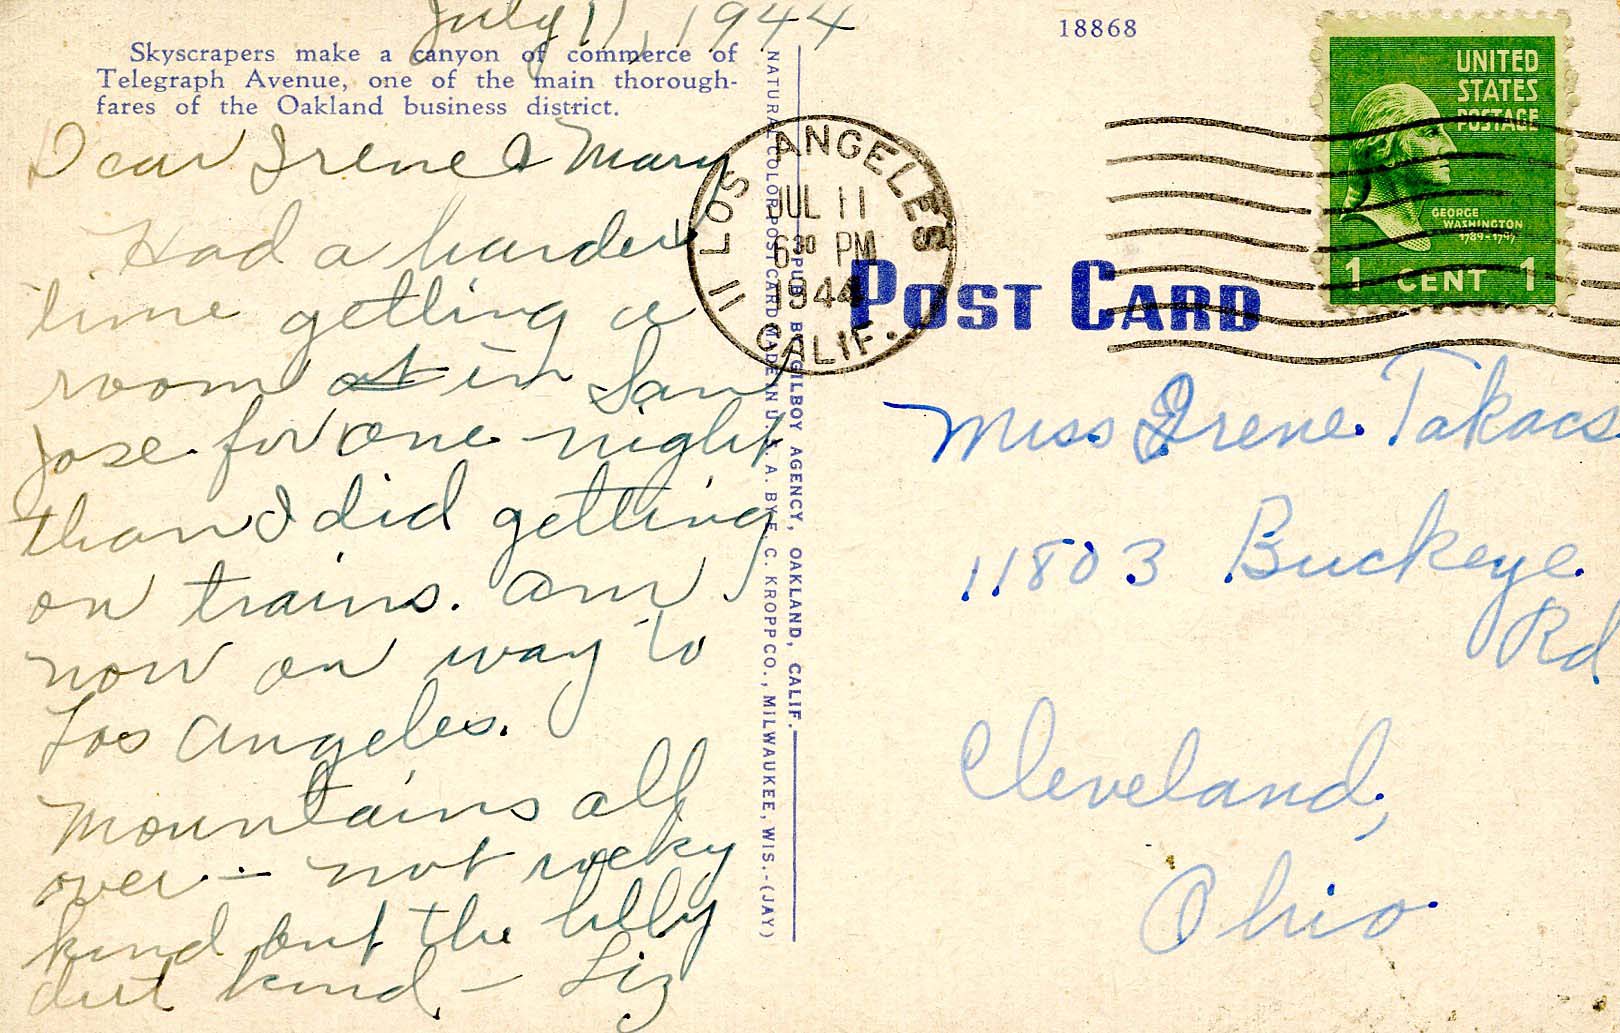 July 11, 1944
Skyscrapers make a canyon of commerce of
Telegraph Avenue, one of the main thorough-
fares of the Oakland business district.
Dear Irene & Mary
Had a harder
time getting a
room at in San
Jose for one night
than I did getting
on trains. Am
now on way to
Los Angeles.
Mountains all
over - not rocky
kind but the hilly
dirt kind. - Liz
NATURAL COLOR POST CARD MADE IN U. S. A. BY E. C. KROPP CO., MILWAUKEE, WIS.-(JAY)
PUB. BY GILBOY AGENCY, OAKLAND, CALIF.
18868
LOS ANGELES
JUL 11
6 30 PM
1944
11 CALIF.
UNITED
STATES
POSTAGE
GEORGE
WASHINGTON
1789-1797
1 CENT 1
POST CARD
Miss Irene Takacs
11803 Buckeye
Rd
Cleveland,
Ohio